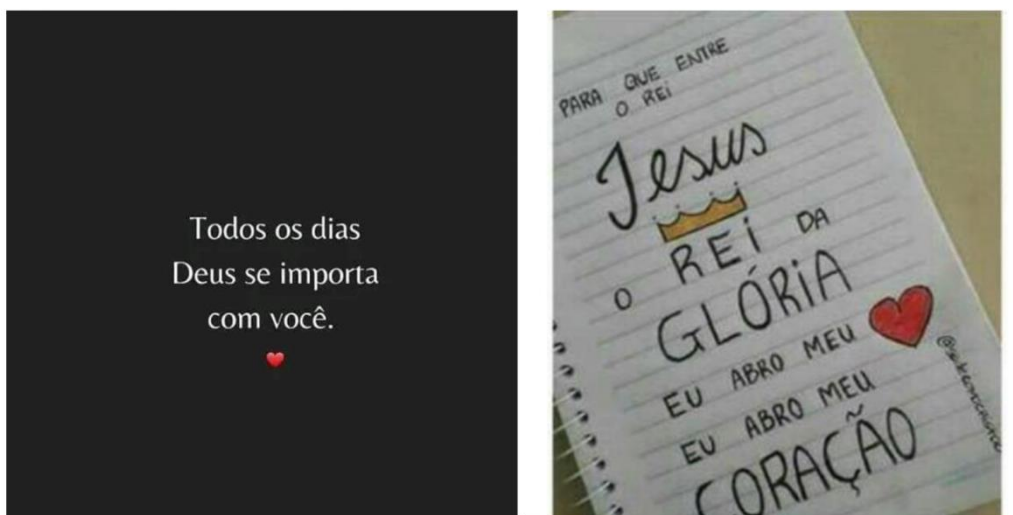 Todos os dias
Deus se importa
com você.
PARA QUE ENTRE
O REI
Jesus
O REI DA
GLÓRIA
EU ABRO MEU
EU ABRO MEU
CORAÇÃO